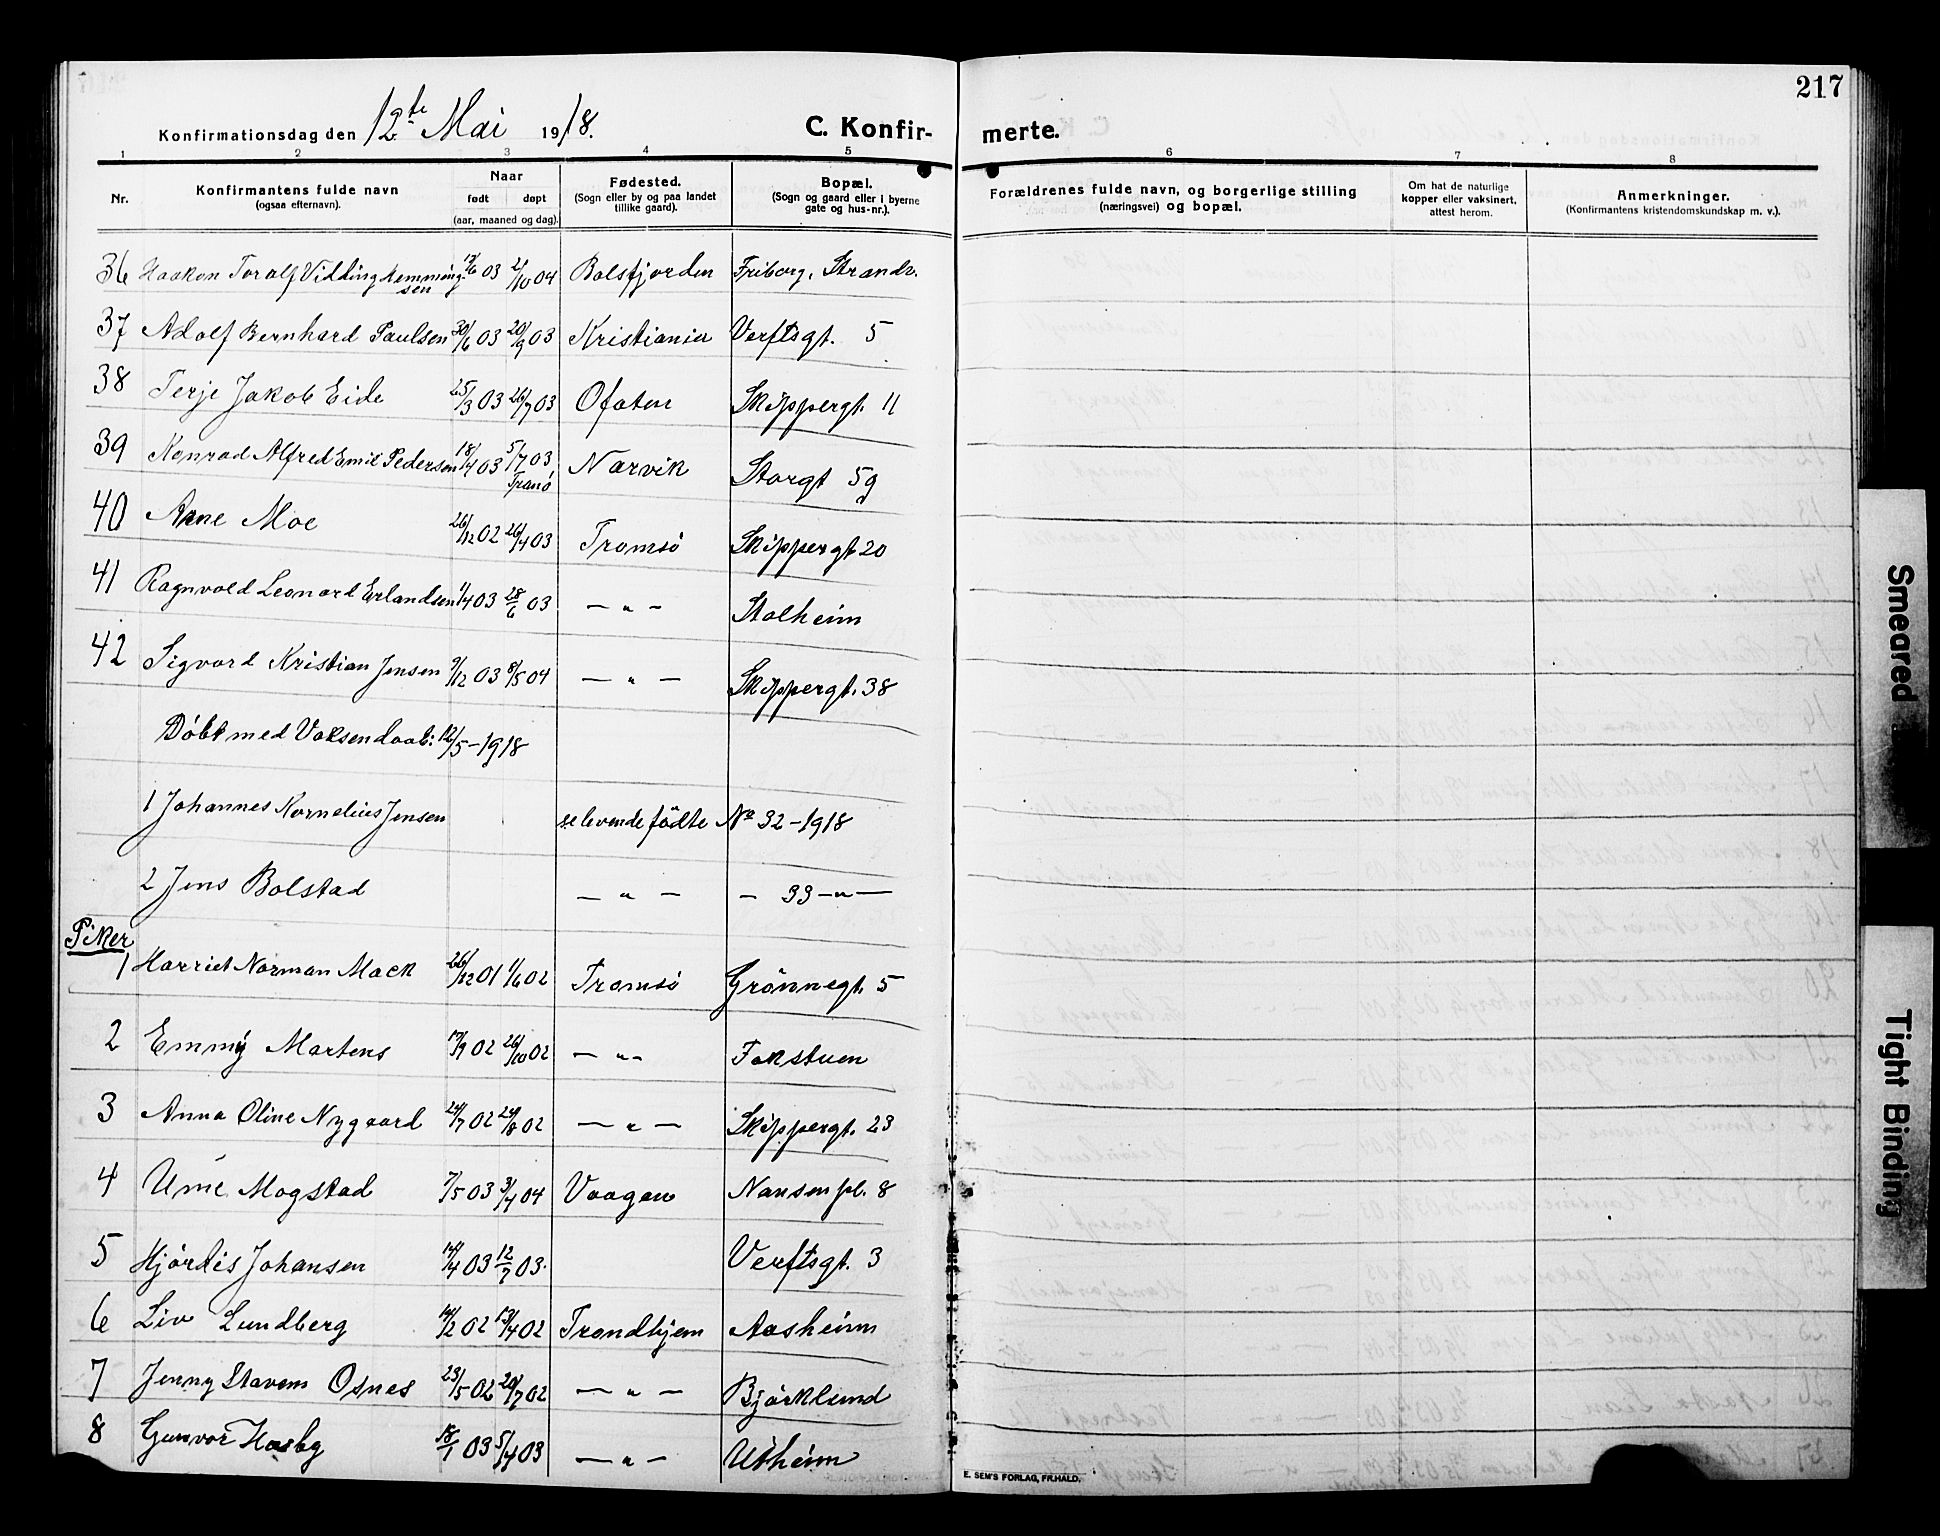 217
Konfirmationsdag den 12te Mai 1918.
C. Konfir- merte.
1 2 3 4 5 6 7 8
Nr.
Konfirmantens fulde navn
(ogsaa efternavn).
Naar
født døpt
(aar, maaned og dag).
Fødested.
(Sogn eller by og paa landet
tillike gaard).
Bopæl.
(Sogn og gaard eller i byerne
gate og hus-nr.).
Forældrenes fulde navn, og borgerlige stilling
(næringsvei) og bopæl.
Om hat de naturlige
kopper eller vaksinert,
attest herom.
Anmerkninger.
(Konfirmantens kristendomskundskap m. v.).
36 Haakon Toralf Vidding Hemming- 17/6 03 2/10 04 Balsfjorden Friborg, Strandv.
sen
37 Adolf Bernhard Paulsen 30/6 03 20/9 03 Kristiania Verftsgt. 5
38 Terje Jakob Eide 25/3 03 26/7 03 Ofoten Skippergt. 11
39 Konrad Alfred Emil Pedersen 18/4 03 5/7 03 Narvik Storgt 59
Tranö
40 Arne Moe 26/12 02 26/4 03 Tromsö Skippergt 20
41 Ragnvald Leonard Erlandsen 1/4 03 28/6 03 — " — Stalheim
42 Sigvard Kristian Jensen 9/12 03 8/5 04 — " — Skippergt. 38
Döbt med Voksendaab: 12/5-1918
1 Johannes Kornelius Jensen se levende födte No 32-1918
2 Jens Bolstad — " — — 33 — " —
Piker
1 Harriet Norman Mack 26/12 01 1/6 02 Tromsö Grönnegt. 5
2 Emmy Martens 17/9 02 26/10 02 — " — Fokstuen
3 Anna Oline Nygaard 24/7 02 24/8 02 — " — Skippergt. 23
4 Unie Mogstad 7/5 03 3/4 04 Vaagan Nansenpl. 8
5 Hjördis Johansen 14/4 03 12/7 03. Verftsgt. 3
6 Liv Lundberg 14/2 02 13/4 02 Trondhjem Aasheim
7 Jenny Stavem Osnes 23/5 02 20/7 02 — " — Björklund
8 Gunvor Hasby 18/1 03 5/4 03 — " — Utheim
E. SEM'S FORLAG, FR.HALD.
Smeared
Tight Binding